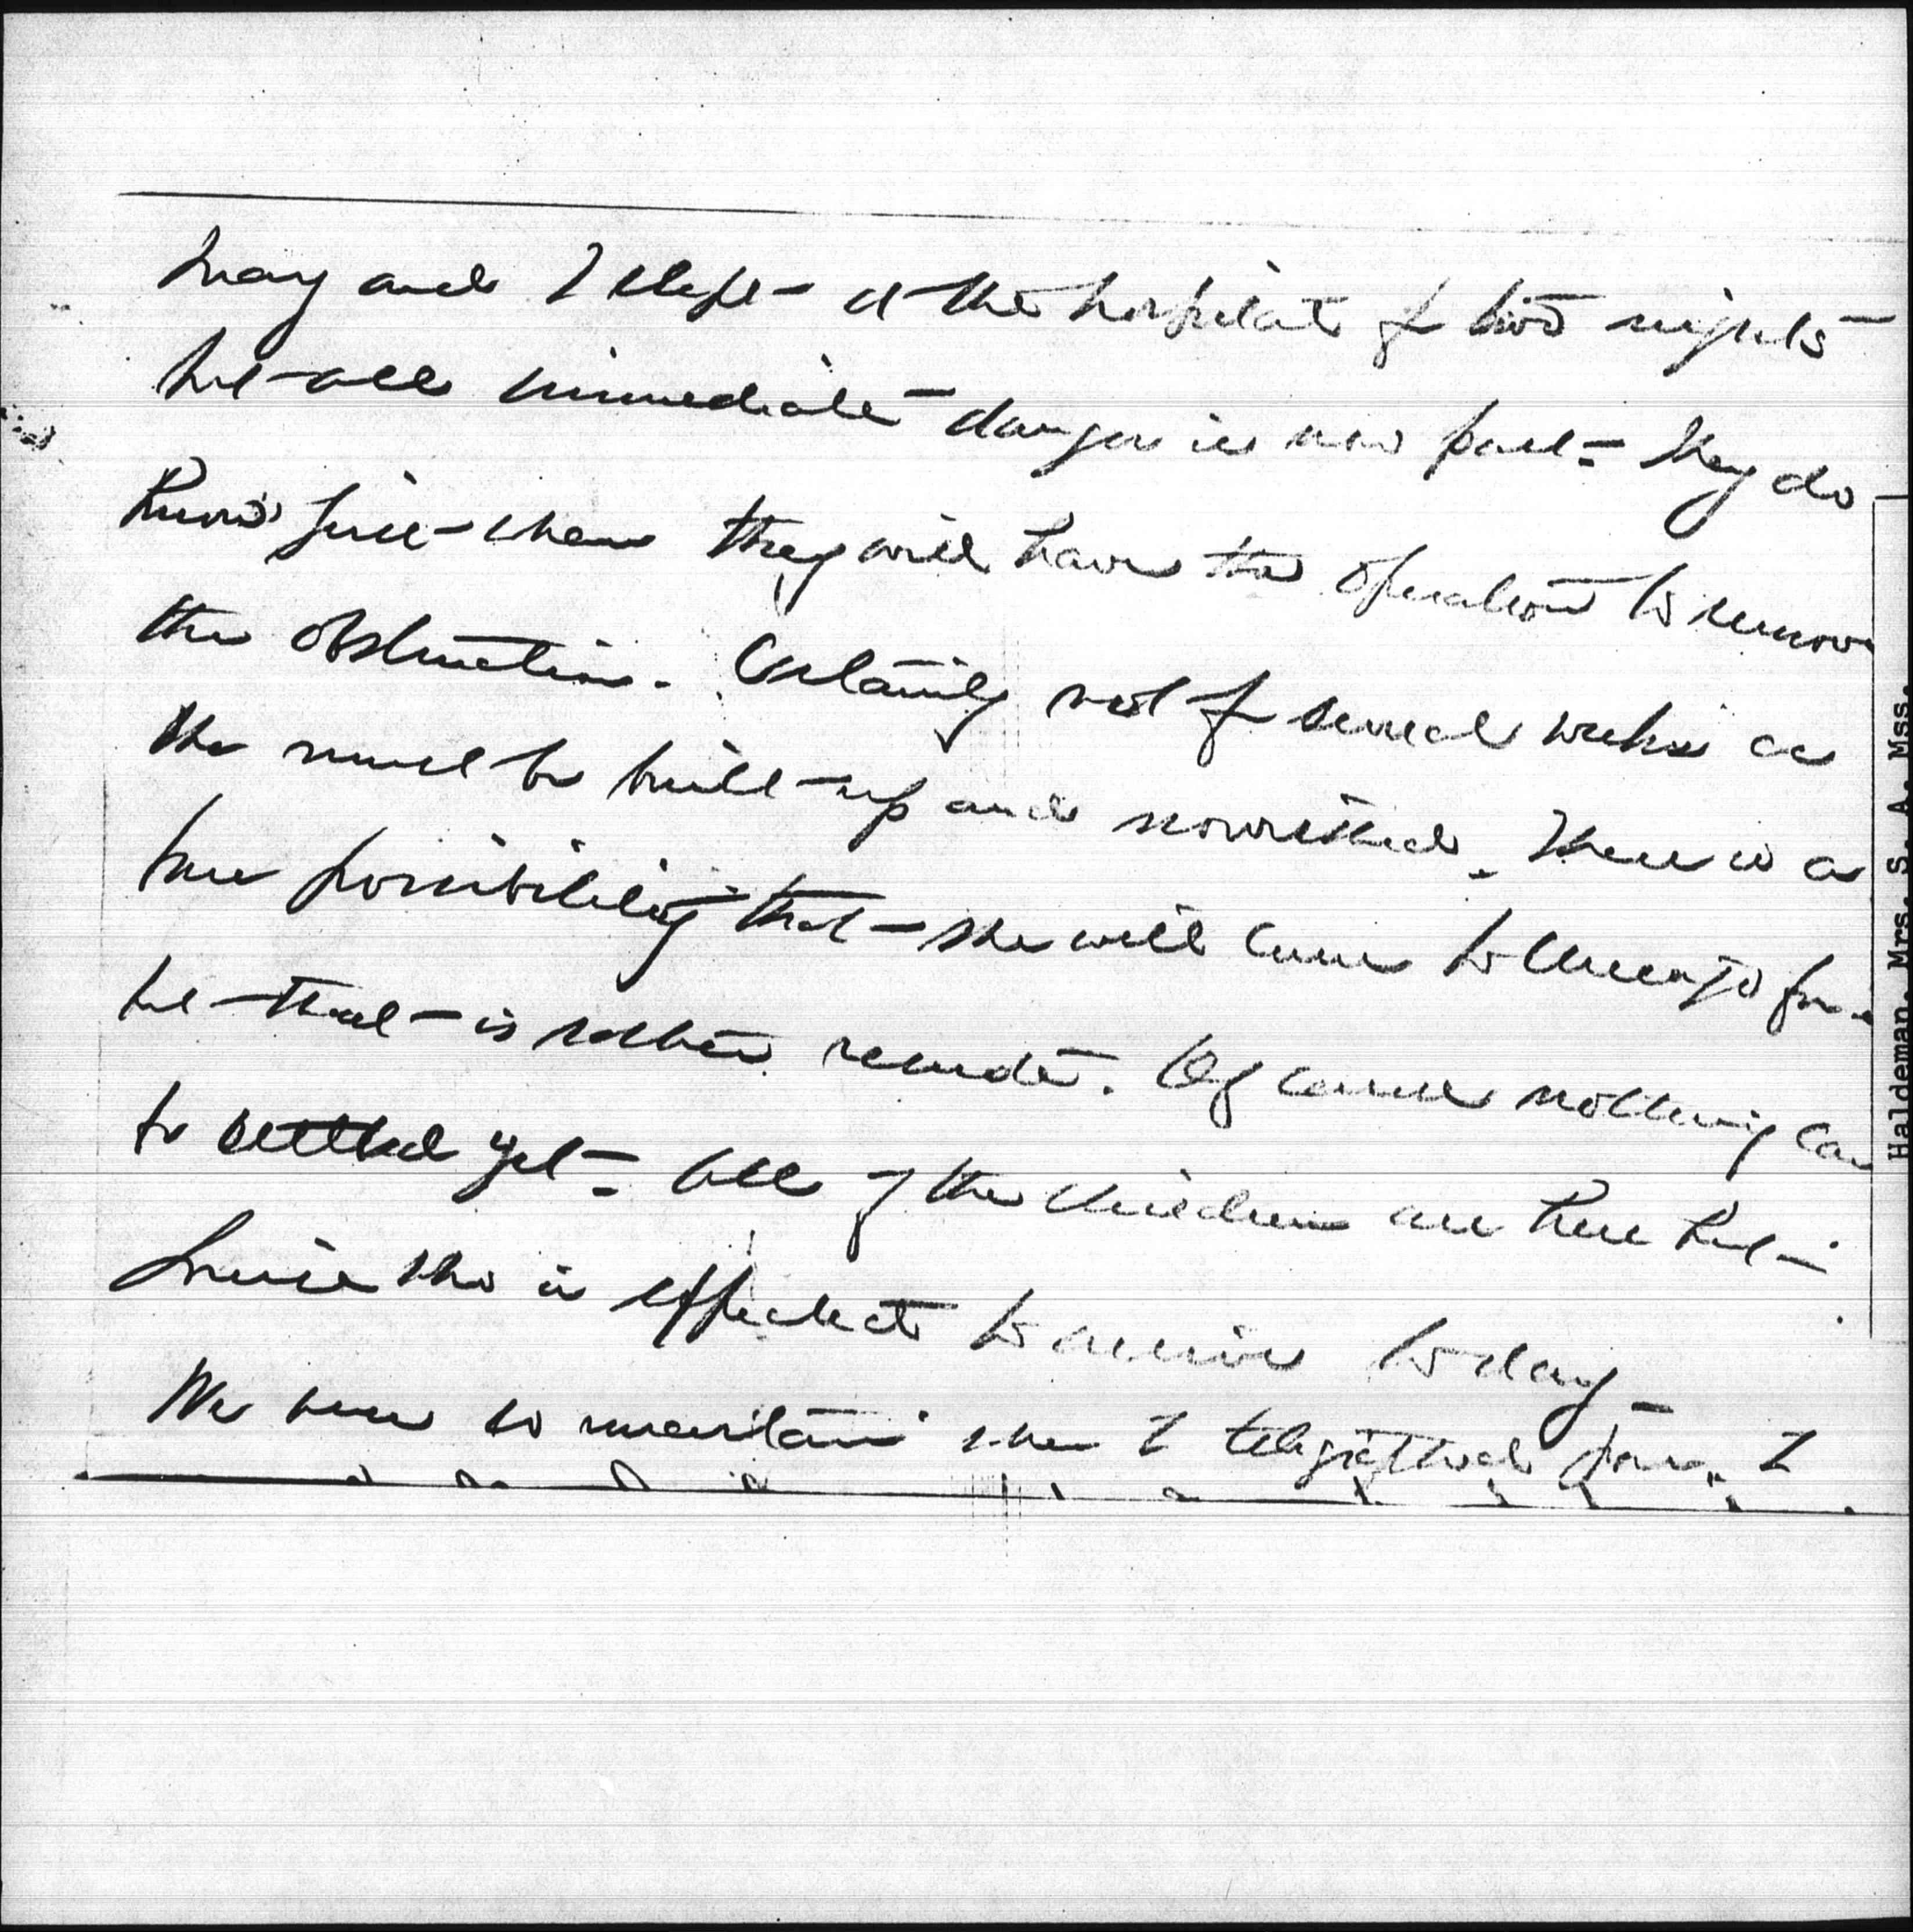 Mary and I slept at the hospital for two nights
but all immediate danger is now past. They do
know just when they will have the operation to remove
the obstruction. Certainly not for several weeks as
she must be built up and nourished. There is a
bare possibility that she will come to Chicago for
but that is rather remote. Of course nothing can
be settled yet. All of the children are here but
who is expected to arrive today –
We were so uncertain when I telegraphed you. I
Haldeman, Mrs. S. A. Mss.